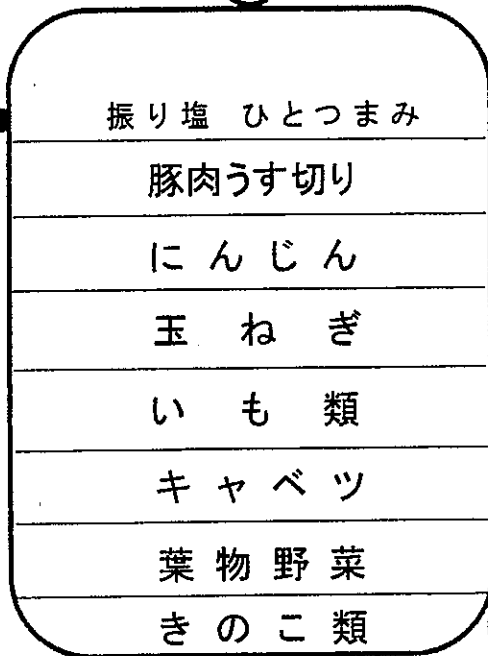 振り塩 ひとつまみ
豚肉うす切り
にんじん
玉ねぎ
いも類
キャベツ
葉物野菜
きのこ類